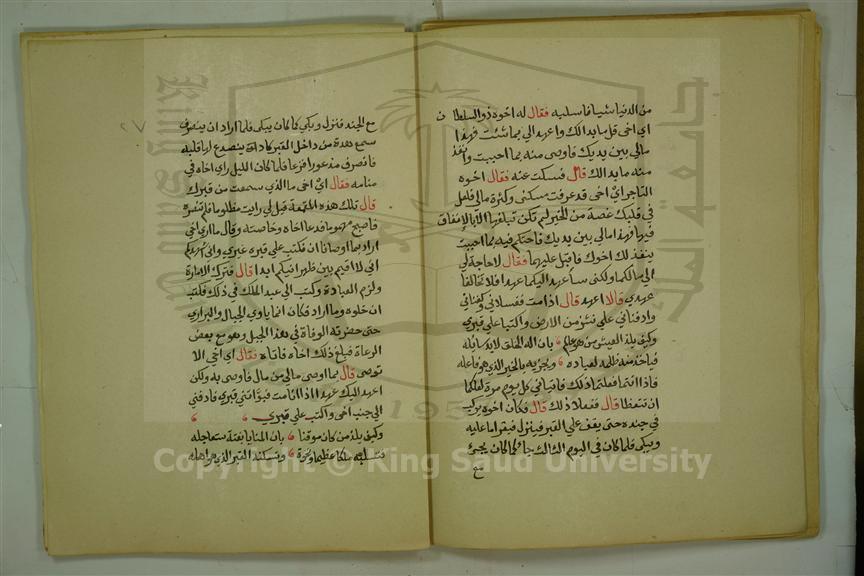 من الدنيا شيئا فاسلبه فقال له اخوه ذو السلطان
اي اخي قل ما بدالك واعهد الي بما شئت فهذا
مالي بين يديك فاوصى منه بما احببت وانفذ
منه ما بدالك قال فسكت عنه فقال اخوه
التاجر اي اخي قد عرفت مسكني وكثرة مالي فلعل
في قلبك غصة من الخير لم تكن تبلغها الا بالانفاق
فيها فهذا مالي بين يديك فاحتكم فيه بما احببت
ينفذ لك اخوك فاقبل عليهما فقال لا حاجة لي
الى مالكما ولكني ساعهد اليكما عهدا فلا تخالفا
عهدي قالا اعهد قال اذا مت فغسلاني وكفناني
وادفناني على نشز من الارض واكتبا على قبري
وكيف يلذ العيش من هو عالم بان اله الخلق لا بد سائله
فياخذ منه ظلمه لعباده ويجزيه بالخير الذي هو فاعله
فاذا انتما فعلتما ذلك فاتياني كل يوم مرة لعلكما
ان تتعظا قال ففعلا ذلك قال فكان اخوه يركب
في جنده حتى يقف على القبر فينزل فيقرا ما عليه
ويبكي فلما كان في اليوم الثالث جا كما كان يجئ
مع
٢٧
مع الجند فنزل وبكى كما كان يبكي فلما اراد ان ينصرف
سمع هدة من داخل القبر كاد ان ينصدع لها قلبه
فانصرف مذعورا فزعا فلما كان الليل راى اخاه في
منامه فقال اي اخي ما الذي سمعت من قبرك
قال تلك هدة المقمعة قيل لي رايت مظلوما فلم تنصره
فاصبح مهموما فدعا اخاه وخاصته وقال ما ارى اخي
اراد بما اوصانا ان نكتب على قبره غيري واني اشهدكم
اني لا اقيم بين ظهرانيكم ابدا قال فترك الامارة
ولزم العبادة وكتب الى عبد الملك في ذلك فكتب
ان خلوه وما اراد فكان انما ياوي الجبال والبراري
حتى حضرته الوفاة في هذا الجبل وهو مع بعض
الرعاة فبلغ ذلك اخاه فاتاه فقال اي اخي الا
توصي قال بما اوصى مالي من مال فاوصى به ولكن
اعهد اليك عهدا اذا انا مت فبوأتني قبري فادفني
الى جنب اخي واكتب على قبري
وكيف يلذ من كان موقنا بان المنايا بغتة ستعاجله
فتسلبه ملكا عظيما ونخوة وتسكنه القبر الذي هو اهله
Copyright © King Saud University
جامعة الملك
King Saud
195